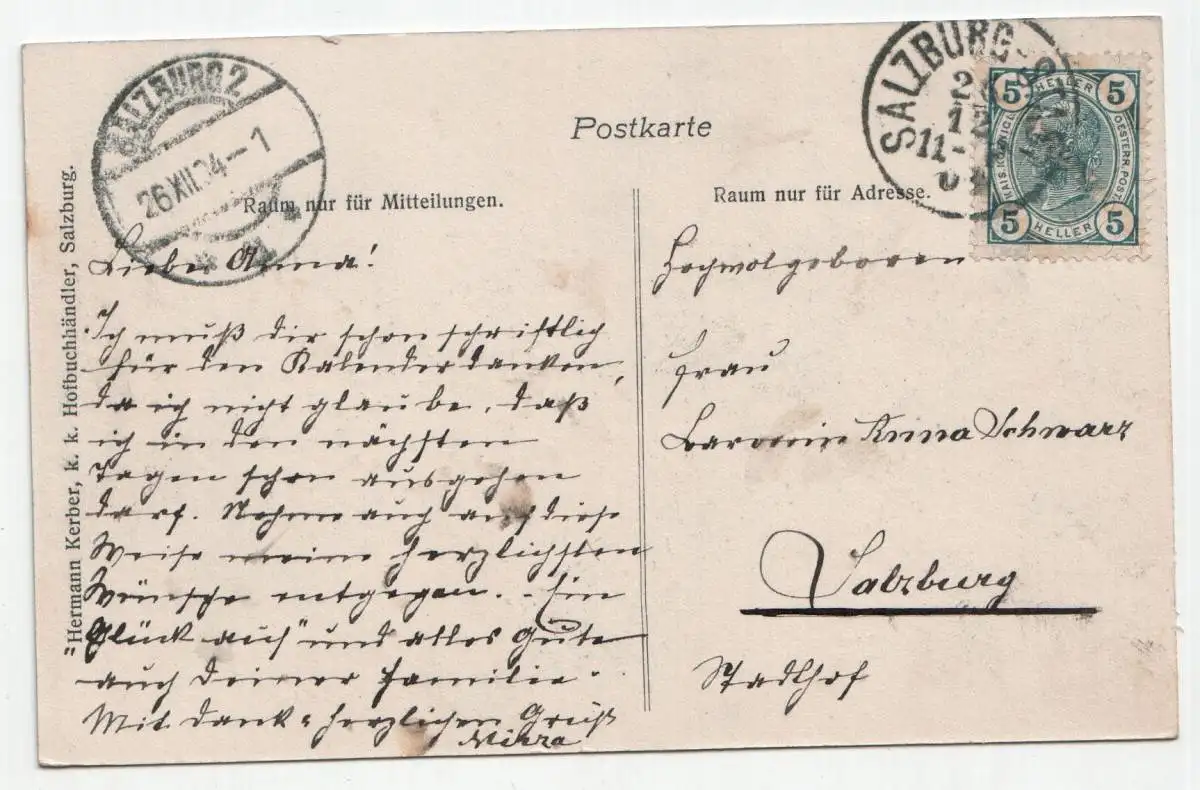 SALZBURG 2
26 XII. 04 – 1
SALZBURG
Postkarte
5 HELLER 5
KAIS. KÖNIGL.
OESTERR. POST
5 HELLER 5
Raum nur für Mitteilungen.
Raum nur für Adresse.
Hermann Kerber, k. k. Hofbuchhändler, Salzburg.
Liebe Anna!
Ich muß dir schon schriftlich
für den Kalender danken,
da ich nicht glaube, daß
ich in den nächsten
Tagen schon ausgehen
darf. Nehme auch auf diese
Weise meine herzlichsten
Wünsche entgegen. - Ein
"Glück auf" und alles Gute
auch Deiner Familie.
Mit Dank & herzlichen Gruß
Hochwolgeboren
Frau
Baronin Anna Schwarz
Salzburg